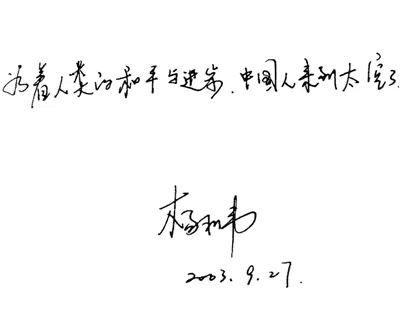 为着人类的和平与进步,中国人来到太空了
杨利伟
2003.9.27.